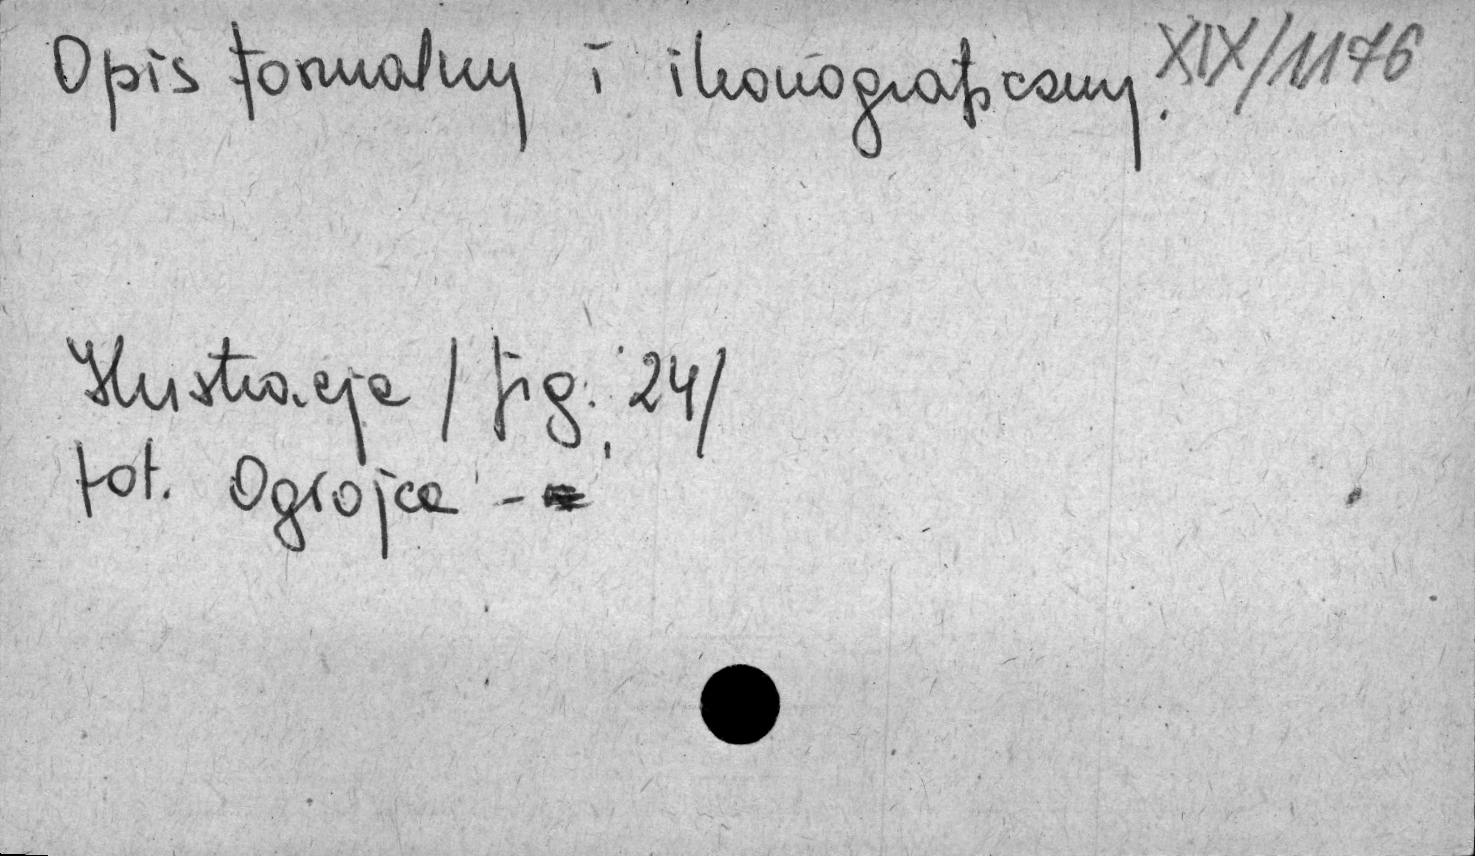 Opis formalny i ikonograficzny. XIX/1176
Ilustracja /fig. 24/
fot. Ogrojca -